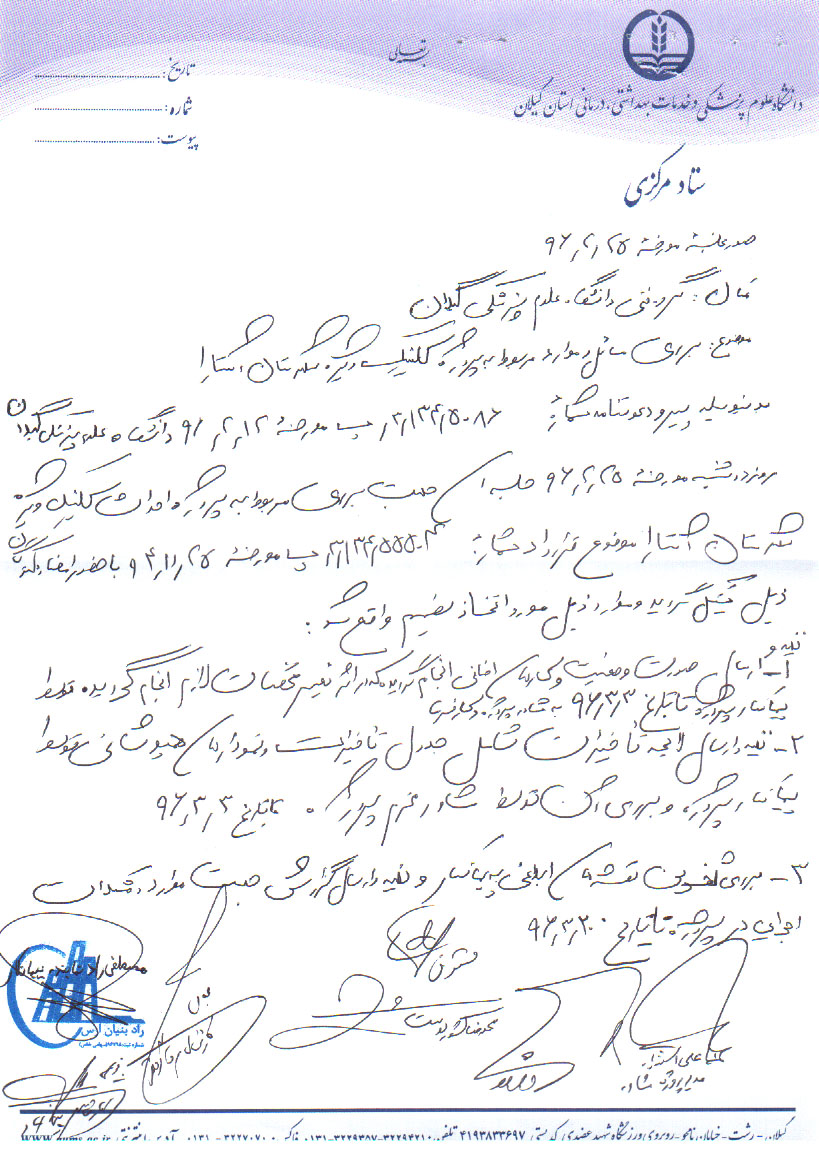 بسمه تعالی
دانشگاه علوم پزشکی و خدمات بهداشتی، درمانی استان گیلان
تاریخ:
شماره:
پیوست:
ستاد مرکزی
صورتجلسه مورخهٔ ۹۶٫۲٫۲۵
مکان: گروه فنی دانشگاه علوم پزشکی گیلان
موضوع: بررسی مسائل و موارد مربوط به پروژه کلینیک ویژه شهرستان آستارا
بدینوسیله پیرو دعوتنامه شمارهٔ ۳٫۱۳۴٫۵۰۸۶ پ مورخهٔ ۹۶٫۲٫۱۲ دانشگاه علوم پزشکی گیلان
روز دوشنبه مورخهٔ ۹۶٫۲٫۲۵ جلسه ای جهت بررسی مربوط به پروژه احداث کلینیک ویژه
شهرستان آستارا موضوع قرارداد شمارهٔ مورخهٔ ۹۴٫۱۱٫۲۵ با حضور امضاء کنندگان
ذیل تشکیل گردید و موارد ذیل مورد اتخاذ تصمیم واقع شد:
۱- تهیه و ارسال صورت وضعیت کارهای اضافی انجام گردیده که در اثر تغییر مشخصات لازم انجام گردیده توسط
پیمانکار پروژه تا تاریخ ۹۶٫۳٫۳ به مشاور پروژه و کارفرما
۲- تهیه و ارسال لایحه تاخیرات شامل جدول تاخیرات و نمودارهای همپوشانی توسط
پیمانکار پروژه و بررسی آن توسط مشاور محترم پروژه تا تاریخ ۹۶٫۳٫۳
۳- بررسی آخرین نقشه های ابلاغی به پیمانکار و تهیه و ارسال گزارش جهت موارد
اجرایی در پروژه تا تاریخ ۹۶٫۳٫۲۰
مصطفی راد نماینده پیمانکار
راد بنیان ارس
محمدرضا
مدیر پروژه مشاور
گیلان - رشت - خیابان نامجو - روبروی ورزشگاه شهید عضدی کد پستی ۴۱۹۳۸۳۳۶۹۷ تلفن: ۳۲۲۹۴۲۱۰-۳۲۲۹۳۸۷-۰۱۳۱ فاکس: ۳۲۲۷۰۷۰-۰۱۳۱ آدرس اینترنتی www.gums.ac.ir